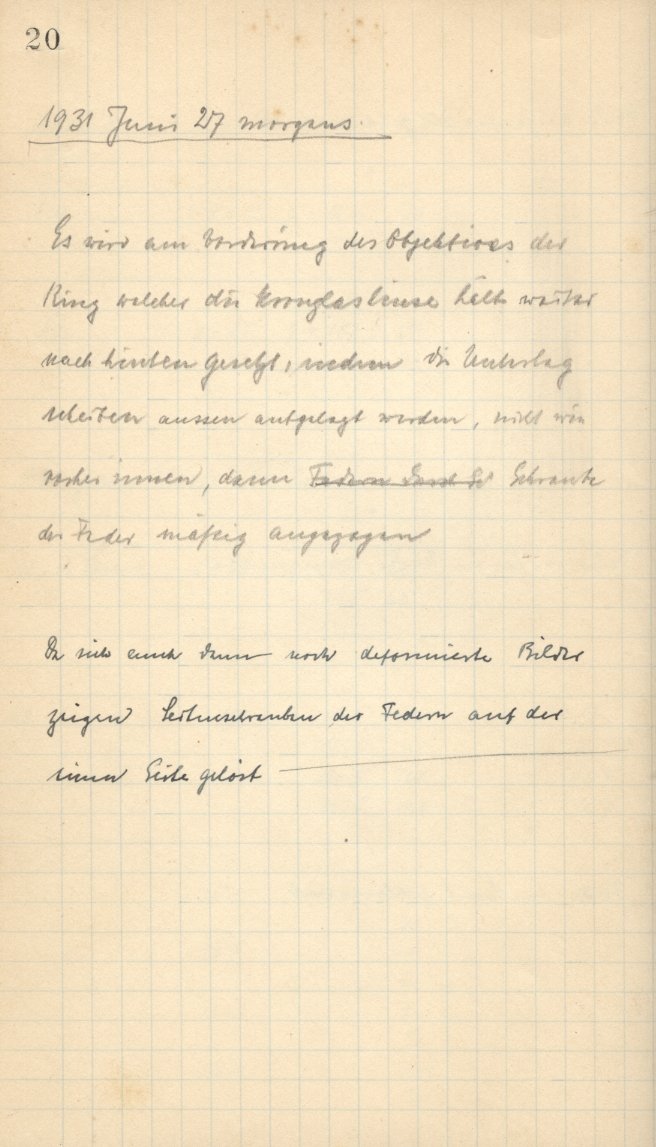 20
1931 Juni 27 morgens.
Es wird am Vorderring des Objektives der
Ring welcher die Kronglaslinse hält weiter
nach hinten gesetzt, indem die Unterlag
scheiben aussen aufgelegt werden, nicht wie
vorher innen, dann Federn Schraube
der Feder mäßig angezogen
Da sich auch dann noch deformierte Bilder
zeigen Seitenschrauben der Federn auf der
einen Seite gelöst